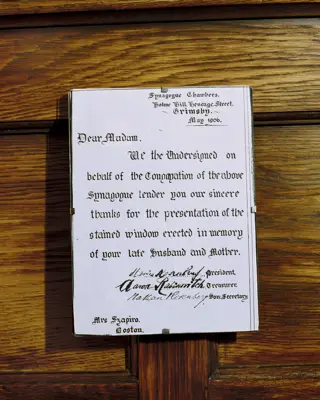 Synagogue Chambers.
Holme Hill, Heneage Street.
Grimsby.
May 1906.
Dear Madam.
We the Undersigned on
behalf of the Congregation of the above
Synagogue tender you our sincere
thanks for the presentation of the
stained window erected in memory
of your late Husband and Mother.
President.
Aaron Treasurer
Nathan Hon. Secretary
Mrs Szapiro.
Boston.